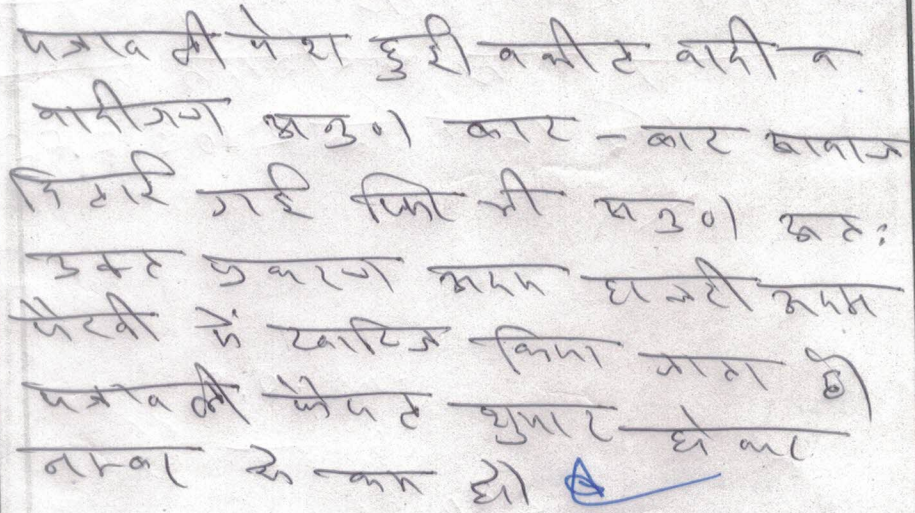 पत्रावली पेश हुई वकील वादी व
वादीगण अनु० बार - बार आवाज
दिलाई गई फिर भी अनु० अतः
उक्त प्रकरण अदम हाजरी अदम
पैरवी में खारिज किया जाता है।
पत्रावली फैसल शुमार होकर
नम्बर से कम हो।